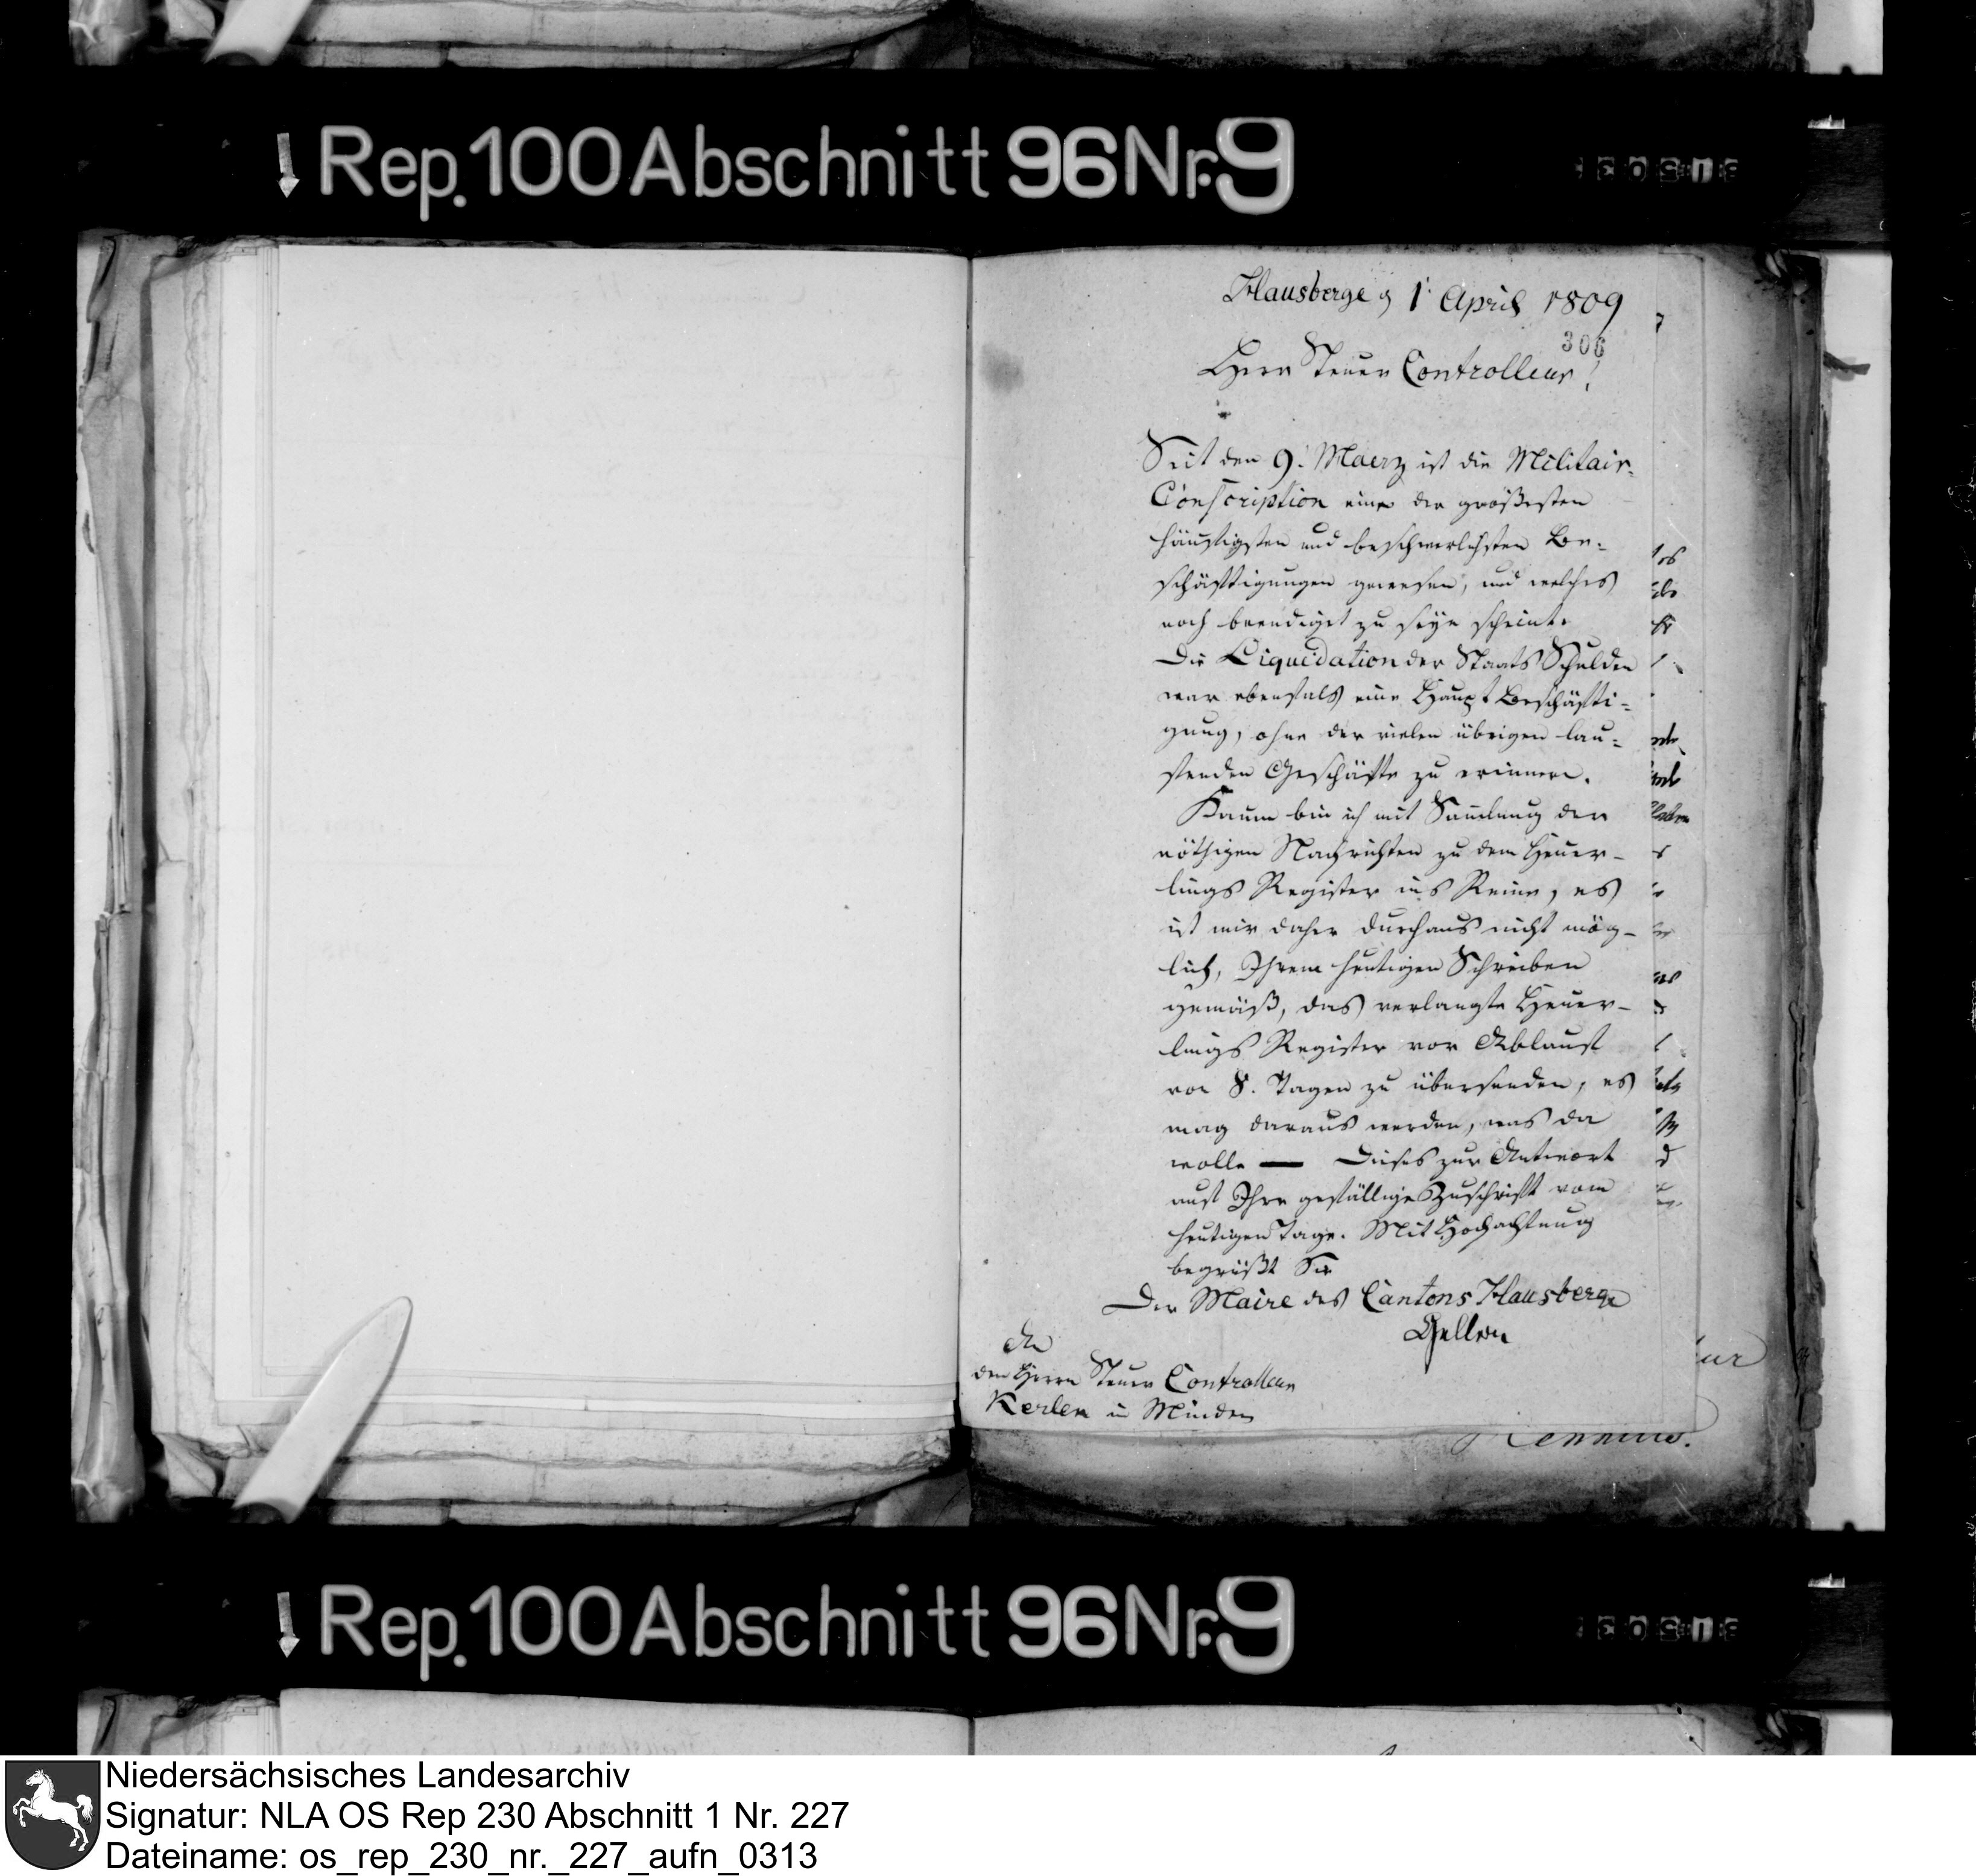 Rep. 100 Abschnitt 96 Nr. 9
Hausberge, 1 April 1809
306
Herr Steuer Controlleur!
Seit den 9. Maerz ist die Militair-
Conscription eine der größesten
häufigsten und beschwerlichsten Be-
schäftigungen gewesen, und welches
noch beendigt zu seyn scheint.
Die Liquidation der Staats Schulden
war ebenfals eine Haupt Beschäfti-
gung, ohne der vielen übrigen lau-
fenden Geschäfte zu erinnern.
Kaum bin ich mit Samlung der
nöthigen Nachrichten zu dem Heuer-
lings Register ins Reine, es
ist mir daher durchaus nicht mög-
lich, Ihrem heutigen Schreiben
gemäß, das verlangte Heuer-
lings Register vor Ablauf
von 8. Tagen zu übersenden, es
mag daraus werden, was da
wolle — Dieses zur Antwort
auf Ihre gefällige Zuschrift vom
heutigen Tage. Mit Hochachtung
begrüßt Sie
Der Maire des Cantons Hausberge
An
den Herrn Steuer Controlleur
Kerlen in Minden
Rep. 100 Abschnitt 96 Nr. 9
Niedersächsisches Landesarchiv
Signatur: NLA OS Rep 230 Abschnitt 1 Nr. 227
Dateiname: os_rep_230_nr._227_aufn_0313